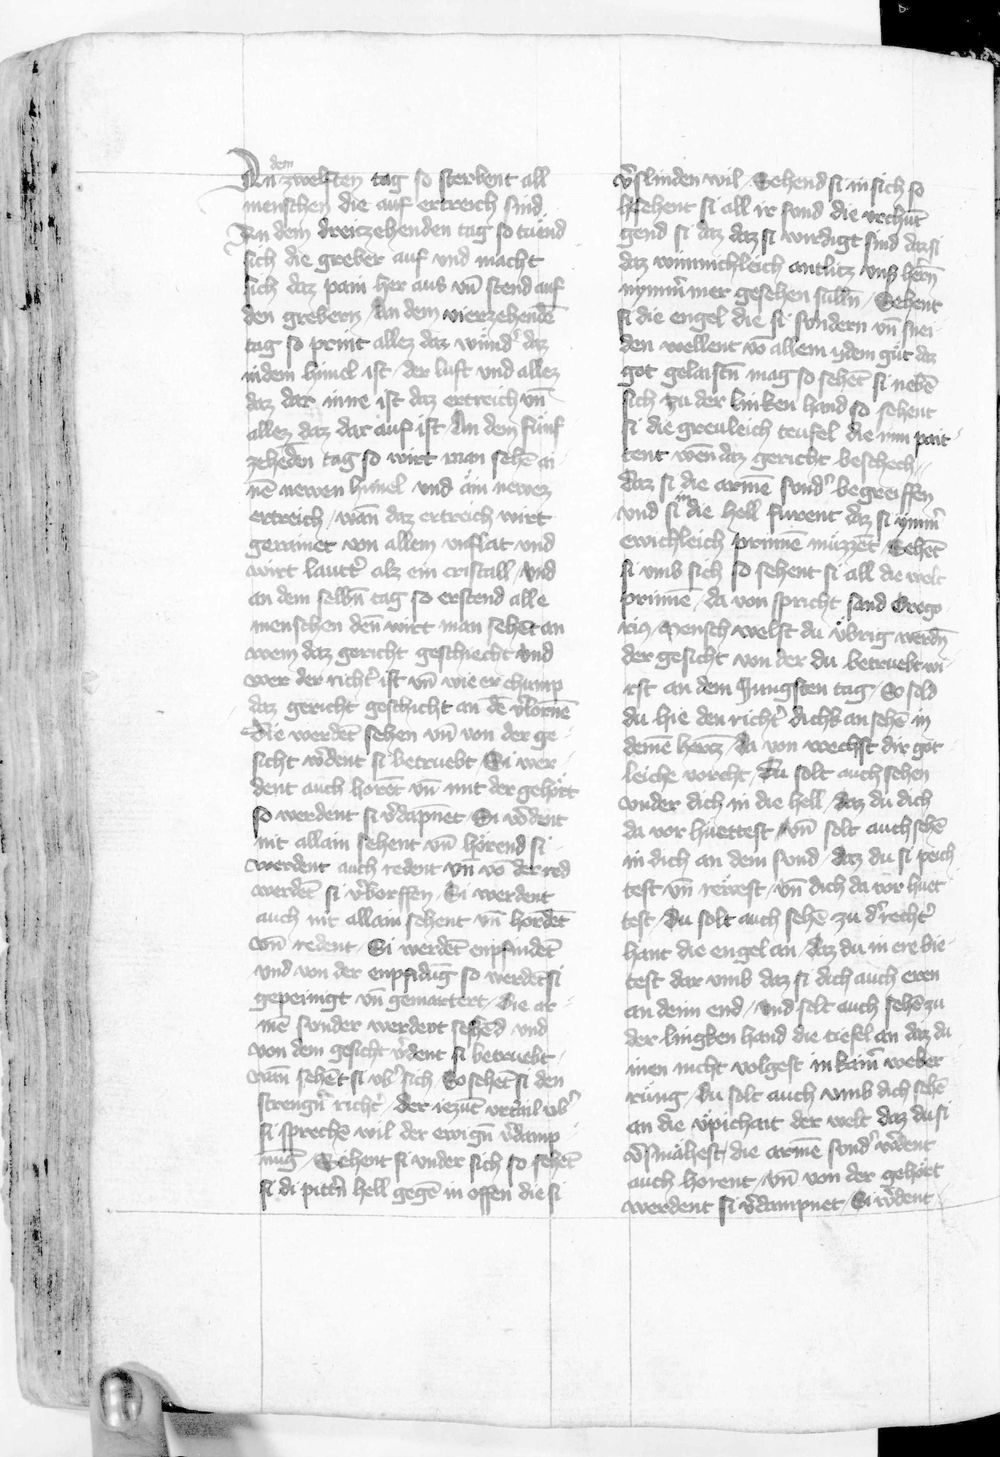 dem
An zwelften tag so sterbent all
menschen die auf ertreich sind
An dem dreitzehenden tag so tuend
sich die greber auf und macht
sich daz pain her aus vn̄ stend auf
den grebern / An dem vierzehendē
tag so print allez daz wund᷑ daz
in dem himel ist / der luft und allez
daz dar inne ist daz ertreich vn̄
allez daz dar auf ist / An dem funf
zehedēn tag so wirt man sehē ai
nē newen himel und ain newez
ertreich / wan̄ daz ertreich wirt
gerainet von allem vnflat und
wirt lautt᷑ alz ein cristall / vnd
an dem selbn̄ tag so erstend alle
menschen den̄ wirt man sehēt an
wem daz gericht geschiecht vnd
wer der richt᷑ ist vn̄ wie er chump
daz gericht geschicht an dē v᷑lornē
die werdēt sehen vn̄ von der ge
sicht w᷑dent si betruebt / Si wer
dent auch horēt vn̄ mit der gehört
so werdent si v᷑dapn̄et / Si w᷑dent
nit allain sehent vn̄ hörend si
werdent auch redent vn̄ vō der red
werdēt si v᷑worffen / Si werdent
auch nit allain sehent vn̄ hordēt
vn̄ redent / Si werdēt enpfindēt
und von der enpfidūg so werdēt si
gepeinigt vn̄ gemartert / Die ar
mē sunder werdent sehēd vnd
von dem gesicht w᷑dent si betruebt
wan̄ sehēt si vb᷑ sich / So sehēt si den
strengn̄ richt᷑ / der iezūt vrtail vb᷑
si sprechē wil der ewign̄ v᷑damp
nūg / Sehent si vnder sich so sehēt
si di pittn̄ hell gegē in offen die si
v᷑slinden wil / Sehend si in sich so
sehent si all ir sund die vrchūt
gend si daz daz si wirdigt sind daz si
daz wunnichleich antlitz vns her̄n
nymm᷑ mer gesehen sulln̄ / Sehent
si die engel die si sundern vn̄ snei
den wellent vō allem ydem gut daz
got gelaistn̄ mag so sehēt si nebē
sich zu der linken hand so sehent
si die greuleich teufel die nun pait
tent wen daz gericht beschech
daz si die armē sund᷑ begreiffen
vnd si in die hell furent daz si ymm᷑
ewichleich prinnē muzzēt / Sehēt
si vmb sich so sehent si all die welt
prinnē / da von spricht sand Grego
rius Mensch welst du übrig werdn̄
der gesicht von der du betruebt wi
rst an dem Jungsten tag / So sold
du hie den richt᷑ dichk an sehē in
deinē hertz / da von wechst dir got
leiche vorcht / Du solt auch sehen
vnder dich in die hell / daz du dich
da vor huettest / vn̄ solt auch sehē
in dich an dem sund / daz du si peich
test vn̄ rewest / vn̄ dich da vor huet
test / Du solt auch sehē zu d᷑ recht᷑
hant die engel an / daz du in ere bie
test dar vmb daz si dich auch eren
an deim end / vnd solt auch sehē zu
der lingken hand die tiefel an daz du
inen nicht volgest in kain᷑ weber
rung / Du solt auch vmb dich sehē
an die üpichait der welt daz du si
v᷑smähest / die armē sund᷑ w᷑dent
auch horent / vn̄ von der gehört
werdent si v᷑dampnet / Si w᷑dent